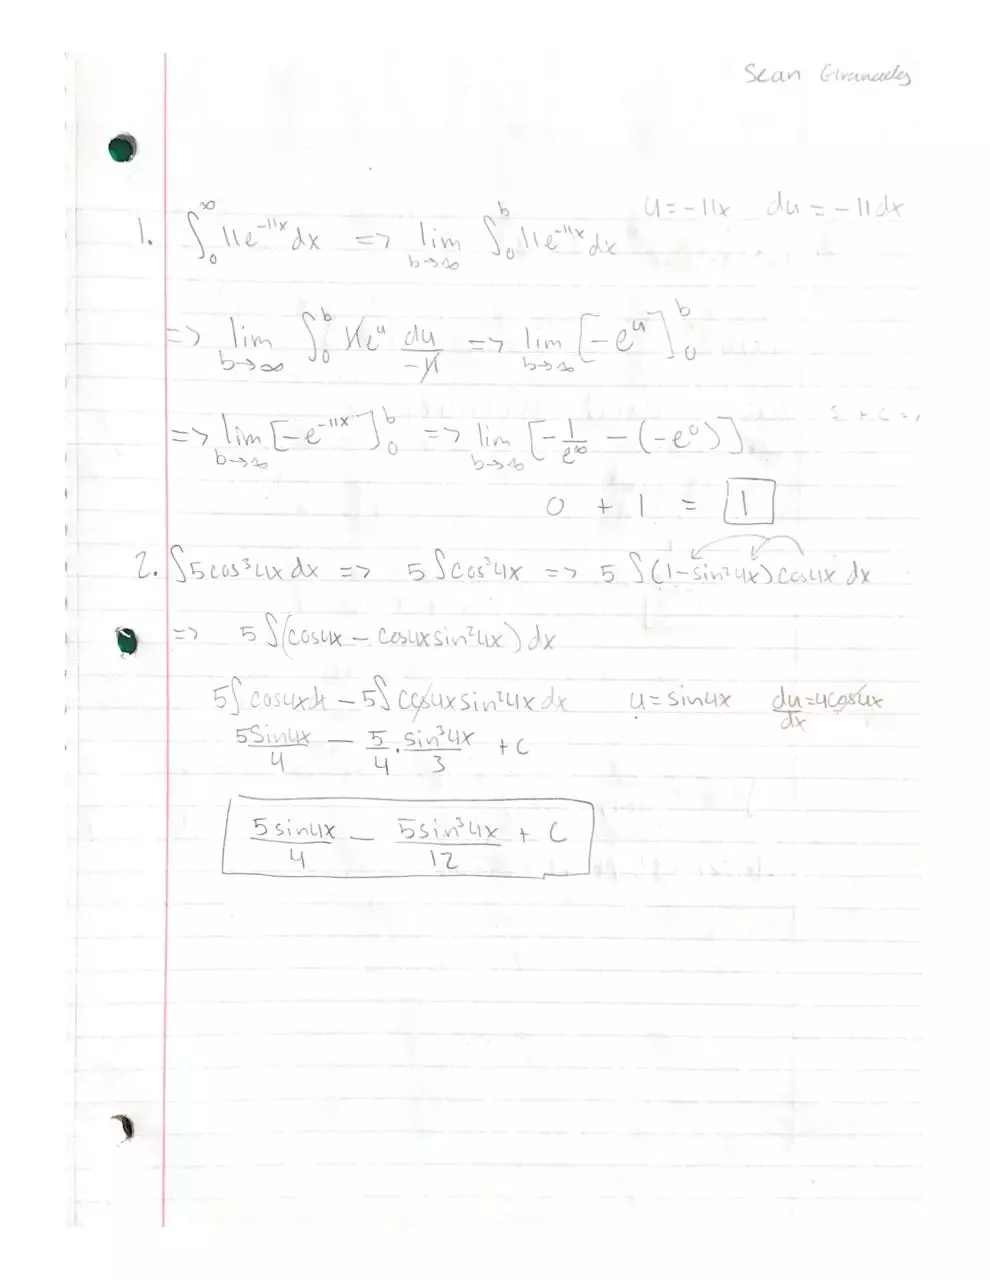 Sean
u = -11x   du = -11dx
1. ∫₀^∞ 11e^(-11x) dx => lim b→∞ ∫₀^b 11e^(-11x) dx
=> lim b→∞ ∫₀^b 11e^u du/-11 => lim b→∞ [-e^u]₀^b
=> lim b→∞ [-e^(-11x)]₀^b => lim b→∞ [-1/e^∞ - (-e^0)]
0 + 1 = 1
2. ∫5cos³4x dx => 5∫cos³4x => 5∫(1-sin²4x)cos4x dx
=> 5∫(cos4x - cos4xsin²4x)dx
5∫cos4xdx - 5∫cos4xsin²4x dx   u = sin4x   du/dx = 4cos4x
5sin4x/4 - 5/4 · sin³4x/3 + C
5sin4x/4 - 5sin³4x/12 + C